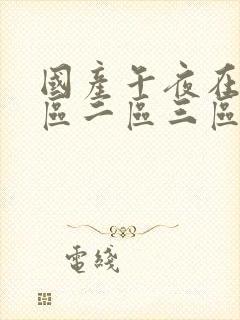 國產午夜在
區二區三區
電綫